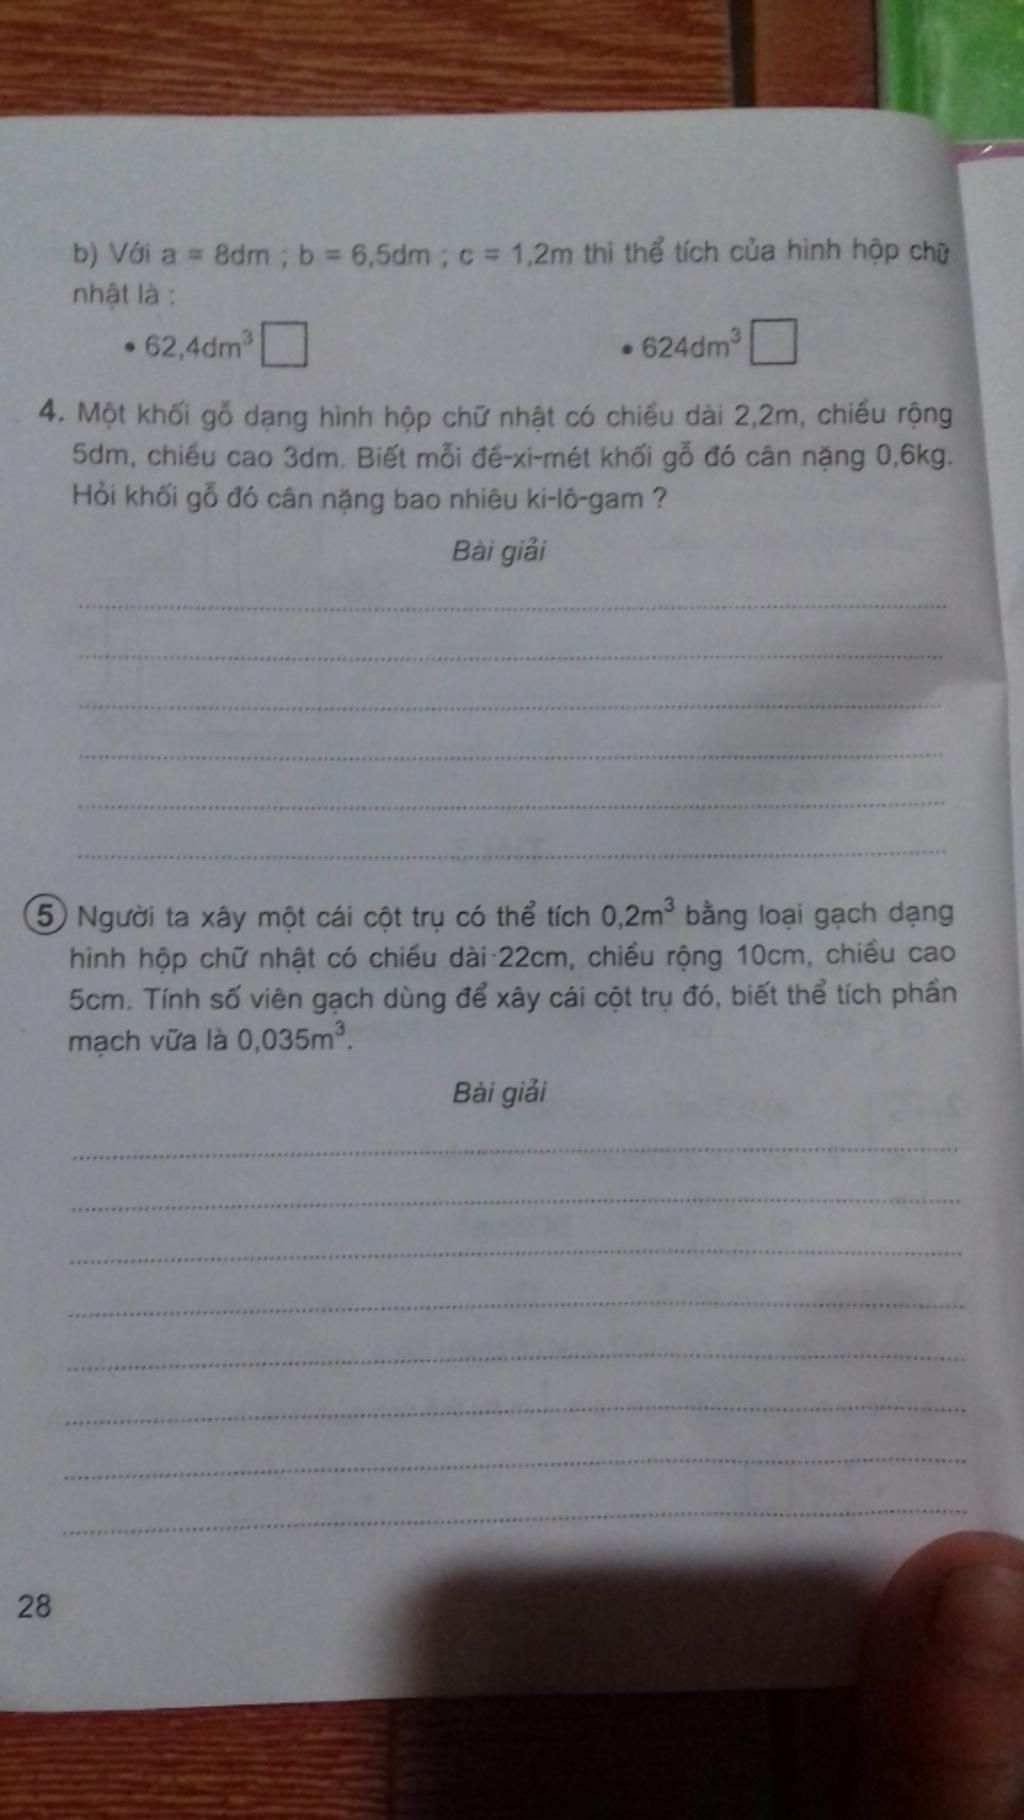 b) Với a = 8dm ; b = 6,5dm ; c = 1,2m thì thể tích của hình hộp chữ
nhật là :
• 62,4dm³ □ • 624dm³ □
4. Một khối gỗ dạng hình hộp chữ nhật có chiều dài 2,2m, chiều rộng
5dm, chiều cao 3dm. Biết mỗi đề-xi-mét khối gỗ đó cân nặng 0,6kg.
Hỏi khối gỗ đó cân nặng bao nhiêu ki-lô-gam ?
Bài giải
5 Người ta xây một cái cột trụ có thể tích 0,2m³ bằng loại gạch dạng
hình hộp chữ nhật có chiều dài 22cm, chiều rộng 10cm, chiều cao
5cm. Tính số viên gạch dùng để xây cái cột trụ đó, biết thể tích phần
mạch vữa là 0,035m³.
Bài giải
28